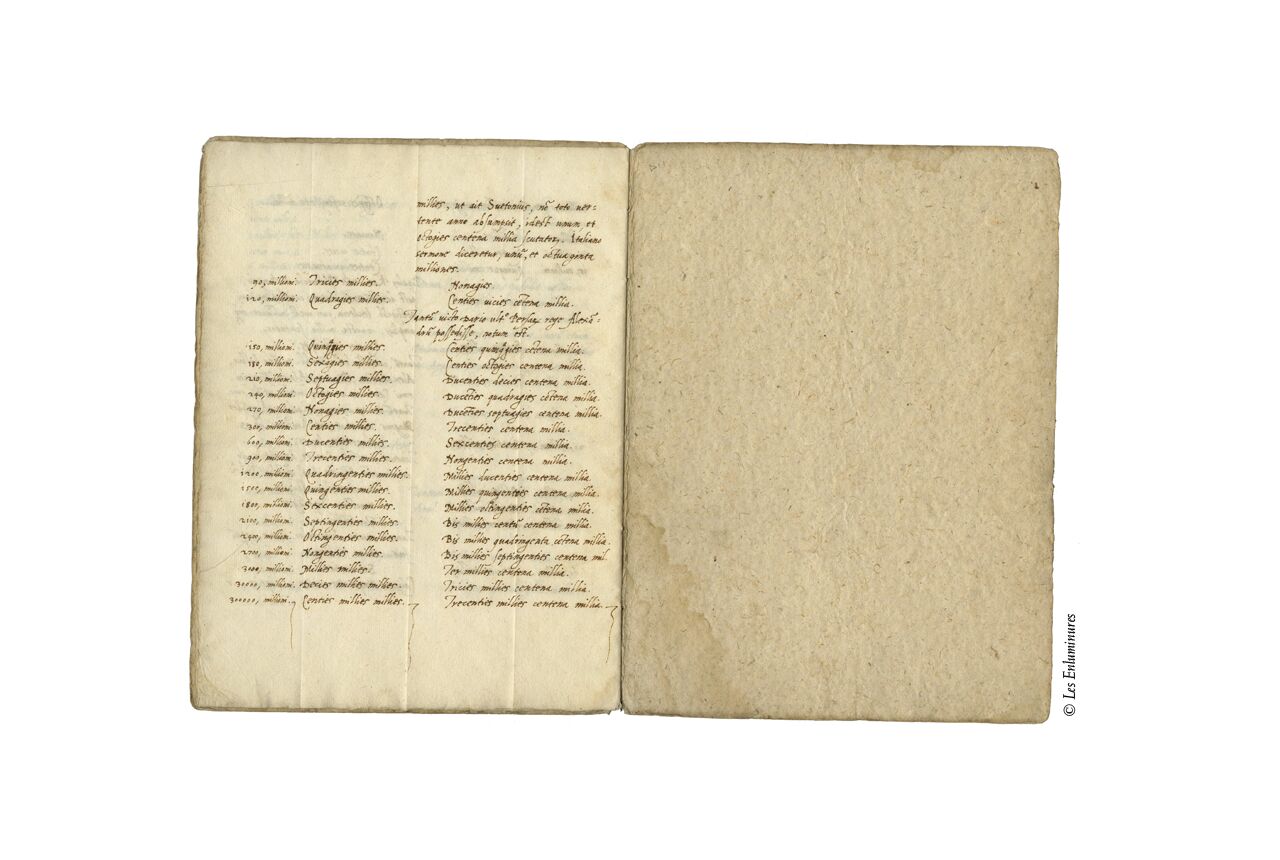 millies, ut ait Suetonius, nō toto ver-
tente anno absumpsit, idest unum, et
octogies centena millia scutator. Italiano
sermone diceretur, unū, et octuaginta
milliones.
90, millioni. Tricies millies. Nonagies.
120, millioni. Quadragies millies. Centies vicies cētena millia.
Tantū victo Dario ultº Persiæ rege Alexā-
drū possedisse, notum est.
150, millioni. Quinquies millies. Centies quinqgies cētena millia.
180, millioni. Sexagies millies. Centies octogies centena millia.
210, millioni. Septuagies millies. Ducenties decies centena millia.
240, millioni. Octogies millies. Ducēties quadragies cētena millia.
270, millioni. Nonagies millies. Ducēties septuagies centena millia.
300, millioni. Centies millies. Trecenties centena millia.
600, millioni. Ducenties millies. Sexcenties centena millia.
900, millioni. Trecenties millies. Nongenties centena millia.
1200, millioni. Quadringenties millies. Millies ducenties centena millia.
1500, millioni. Quingenties millies. Millies quingenties centena millia.
1800, millioni. Sexcenties millies. Millies octingenties cētena millia.
2100, millioni. Septingenties millies. Bis millies centū centena millia.
2400, millioni. Octingenties millies. Bis millies quadringenta cētena millia.
2700, millioni. Nongenties millies. Bis millies septingenties centena mil.
3000, millioni. Millies millies. Ter millies centena millia.
30000, millioni. Decies millies millies. Tricies millies centena millia.
300000, millioni. Centies millies millies. Trecenties millies centena millia.
© Les Enluminures